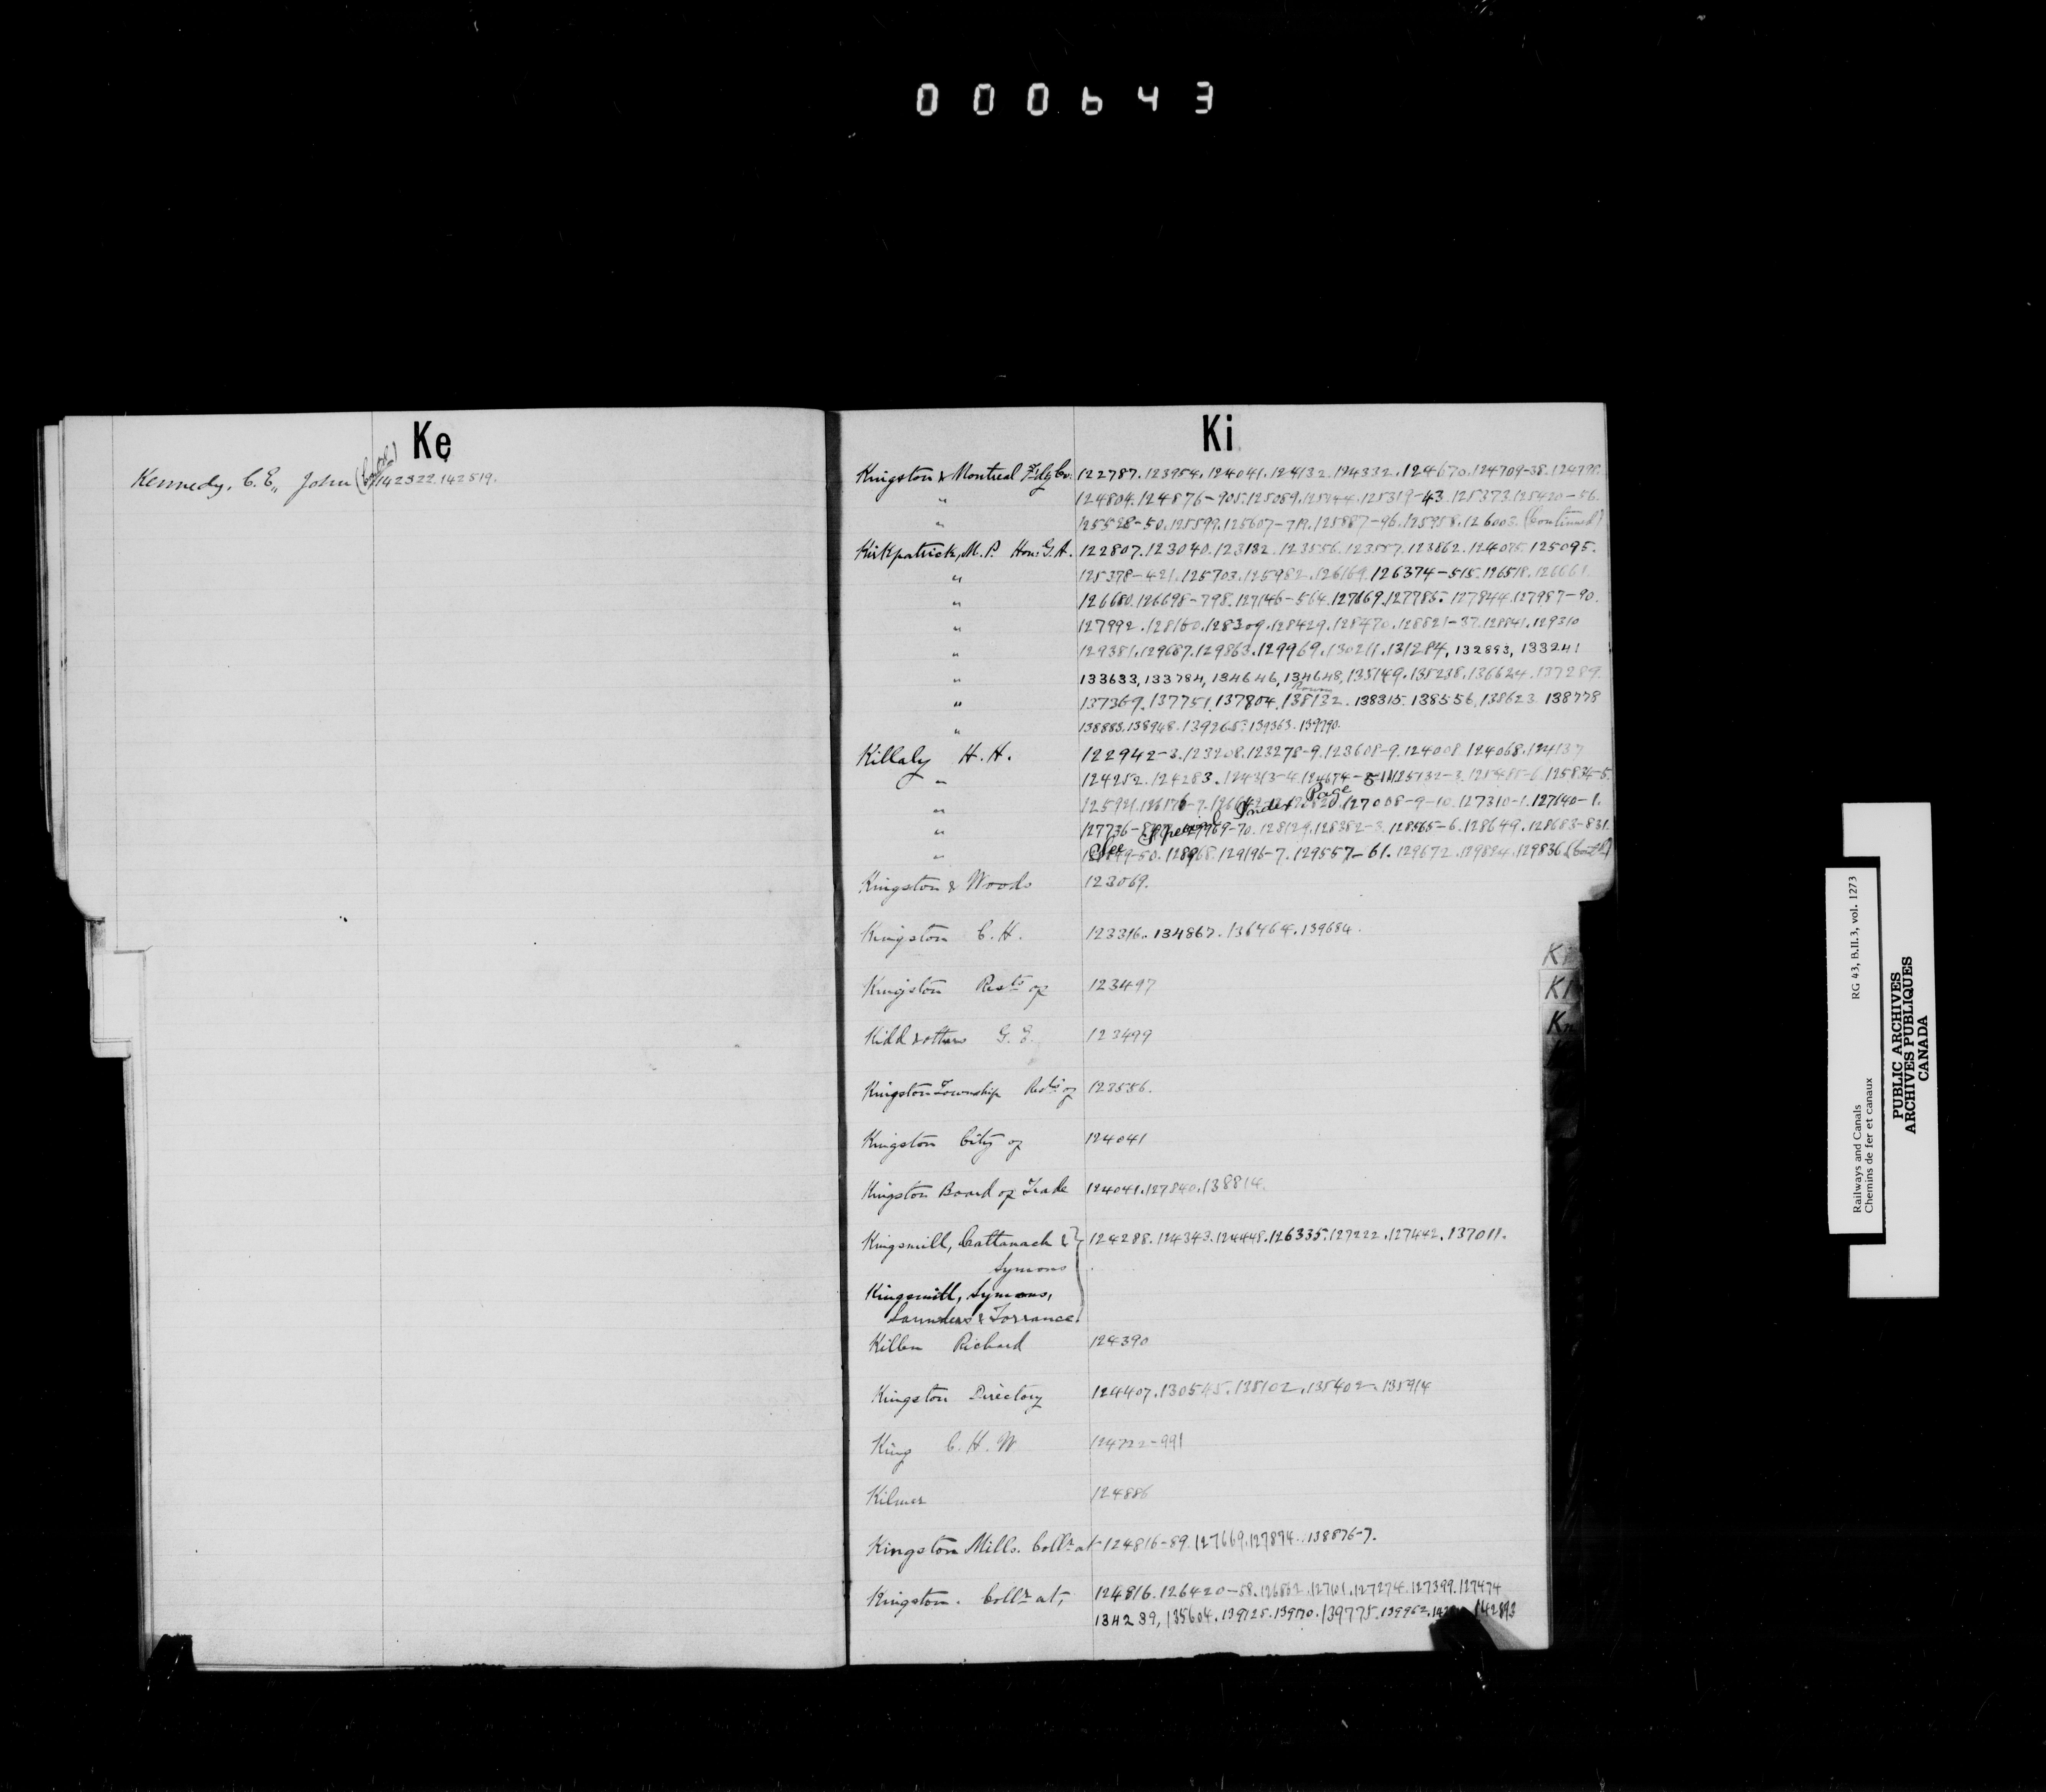 000643
Ke
Kennedy, C.E., John 142322.142519.
Ki
Kingston & Montreal Fdg Co. 122787.123954.124041.124132.124332.124670.124709-38.124798.
" 124804.124876-905.125089.125244.125319-43.125373.125420-56.
" 125528-50.125599.125607-719.125887-96.125958.126003.(Continued)
Kirkpatrick, M.P. Hon. G.A. 122807.123040.123132.123556.123557.123862.124075.125095.
" 125378-421.125703.125982.126169.126374-515.126518.126661
" 126680.126698-798.127146-564.127669.127785.127844.127987-90.
" 127992.128160.128309.128429.128470.128821-37.128841.129310
" 129381.129687.129863.129969.130211.131284, 132893, 133241
" 133633, 133784, 134646, 134648, 135149.135238.136624.137289.
" 137369.137751.137804.138132.138315.138556.138623.138778
" 138883.138948.139265.139363.139790.
Killaly H.H. 122942-3.123208.123278-9.123608-9.124008.124068.124137
" 124252.124283.124313-4.124674-5.125132-3.125485-6.125834-5.
" 127008-9-10.127310-1.127640-1.
See Special Index Page
" 128129.128382-3.128565-6.128649.128683-831.
" 128968.129196-7.129557-61.129672.129824.129836.(Cont'd)
Kingston & Woods 123069.
Kingston C.H. 123316.134867.136464.139684.
Kingston Rests of 123497
Kidd & others G.E. 123499
Kingston Township Rests of 123556.
Kingston City of 124041
Kingston Board of Trade 124041.127840.138814.
Kingsmill, Cattanach & 124288.124343.124448.126335.127222.127442.137011.
Symons
Kingsmill, Symons,
Saunders & Torrance
Killen Richard 124390
Kingston Directory 124407.130545.135102.135402.135914
King C.H.W 124722-991
Kilmer 124886
Kingston Mills. Collr at 124816-89.127669.127874.138876-7.
Kingston. Collr at, 124816.126420-58.126862.127101.127274.127399.127474
134239, 135604.139125.139170.139775.139962. 142893
Ki
Kl
Kn
Railways and Canals RG 43, B.II.3, vol. 1273
Chemins de fer et canaux
PUBLIC ARCHIVES
ARCHIVES PUBLIQUES
CANADA